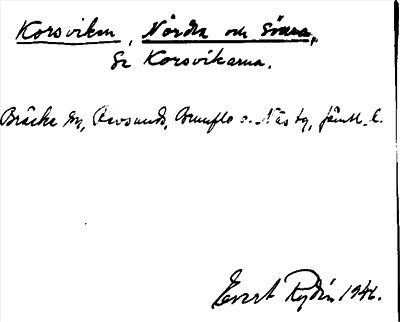 Korsviken, Nordra och Södra,
Se Korsvikarna.
Bräcke sn, Revsunds, Brunflo o. Näs tg, Jämtl. l.
Evert Rydin 1946.